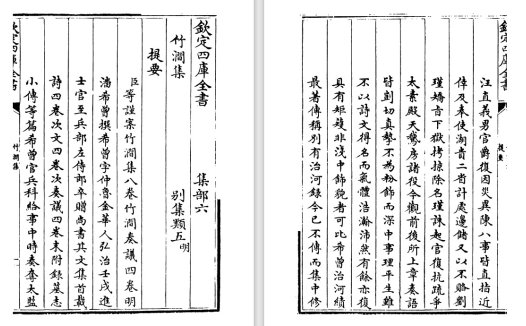 欽定四庫全書 集部六
竹澗集 別集類五明
提要
臣等謹案竹澗集八卷竹澗奏議四卷明
潘希曾撰希曾字仲魯金華人弘治壬戌進
士官至兵部左侍郎卒贈尚書其文集首載
詩四卷次文四卷次奏議四卷末附錄墓志
小傳等篇希曾官兵科給事中時奏奪太監
欽定四庫全書 竹澗集
欽定四庫全書 提要
汪直義男官爵復因災異陳八事皆直指近
倖及奉使湖貴二省計處邊儲又以不賂劉
瑾矯旨下獄拷掠除名瑾誅起官復抗疏爭
太素殿天鵝房諸役今觀前後所上章奏語
皆剴切真摯不為粉飾而深中事理平生雖
不以詩文得名而氣體浩瀚沛然有餘亦復
具有矩矱非淺中飾貌者可比希曾治河績
最著傳稱別有治河錄今已不傳而集中修